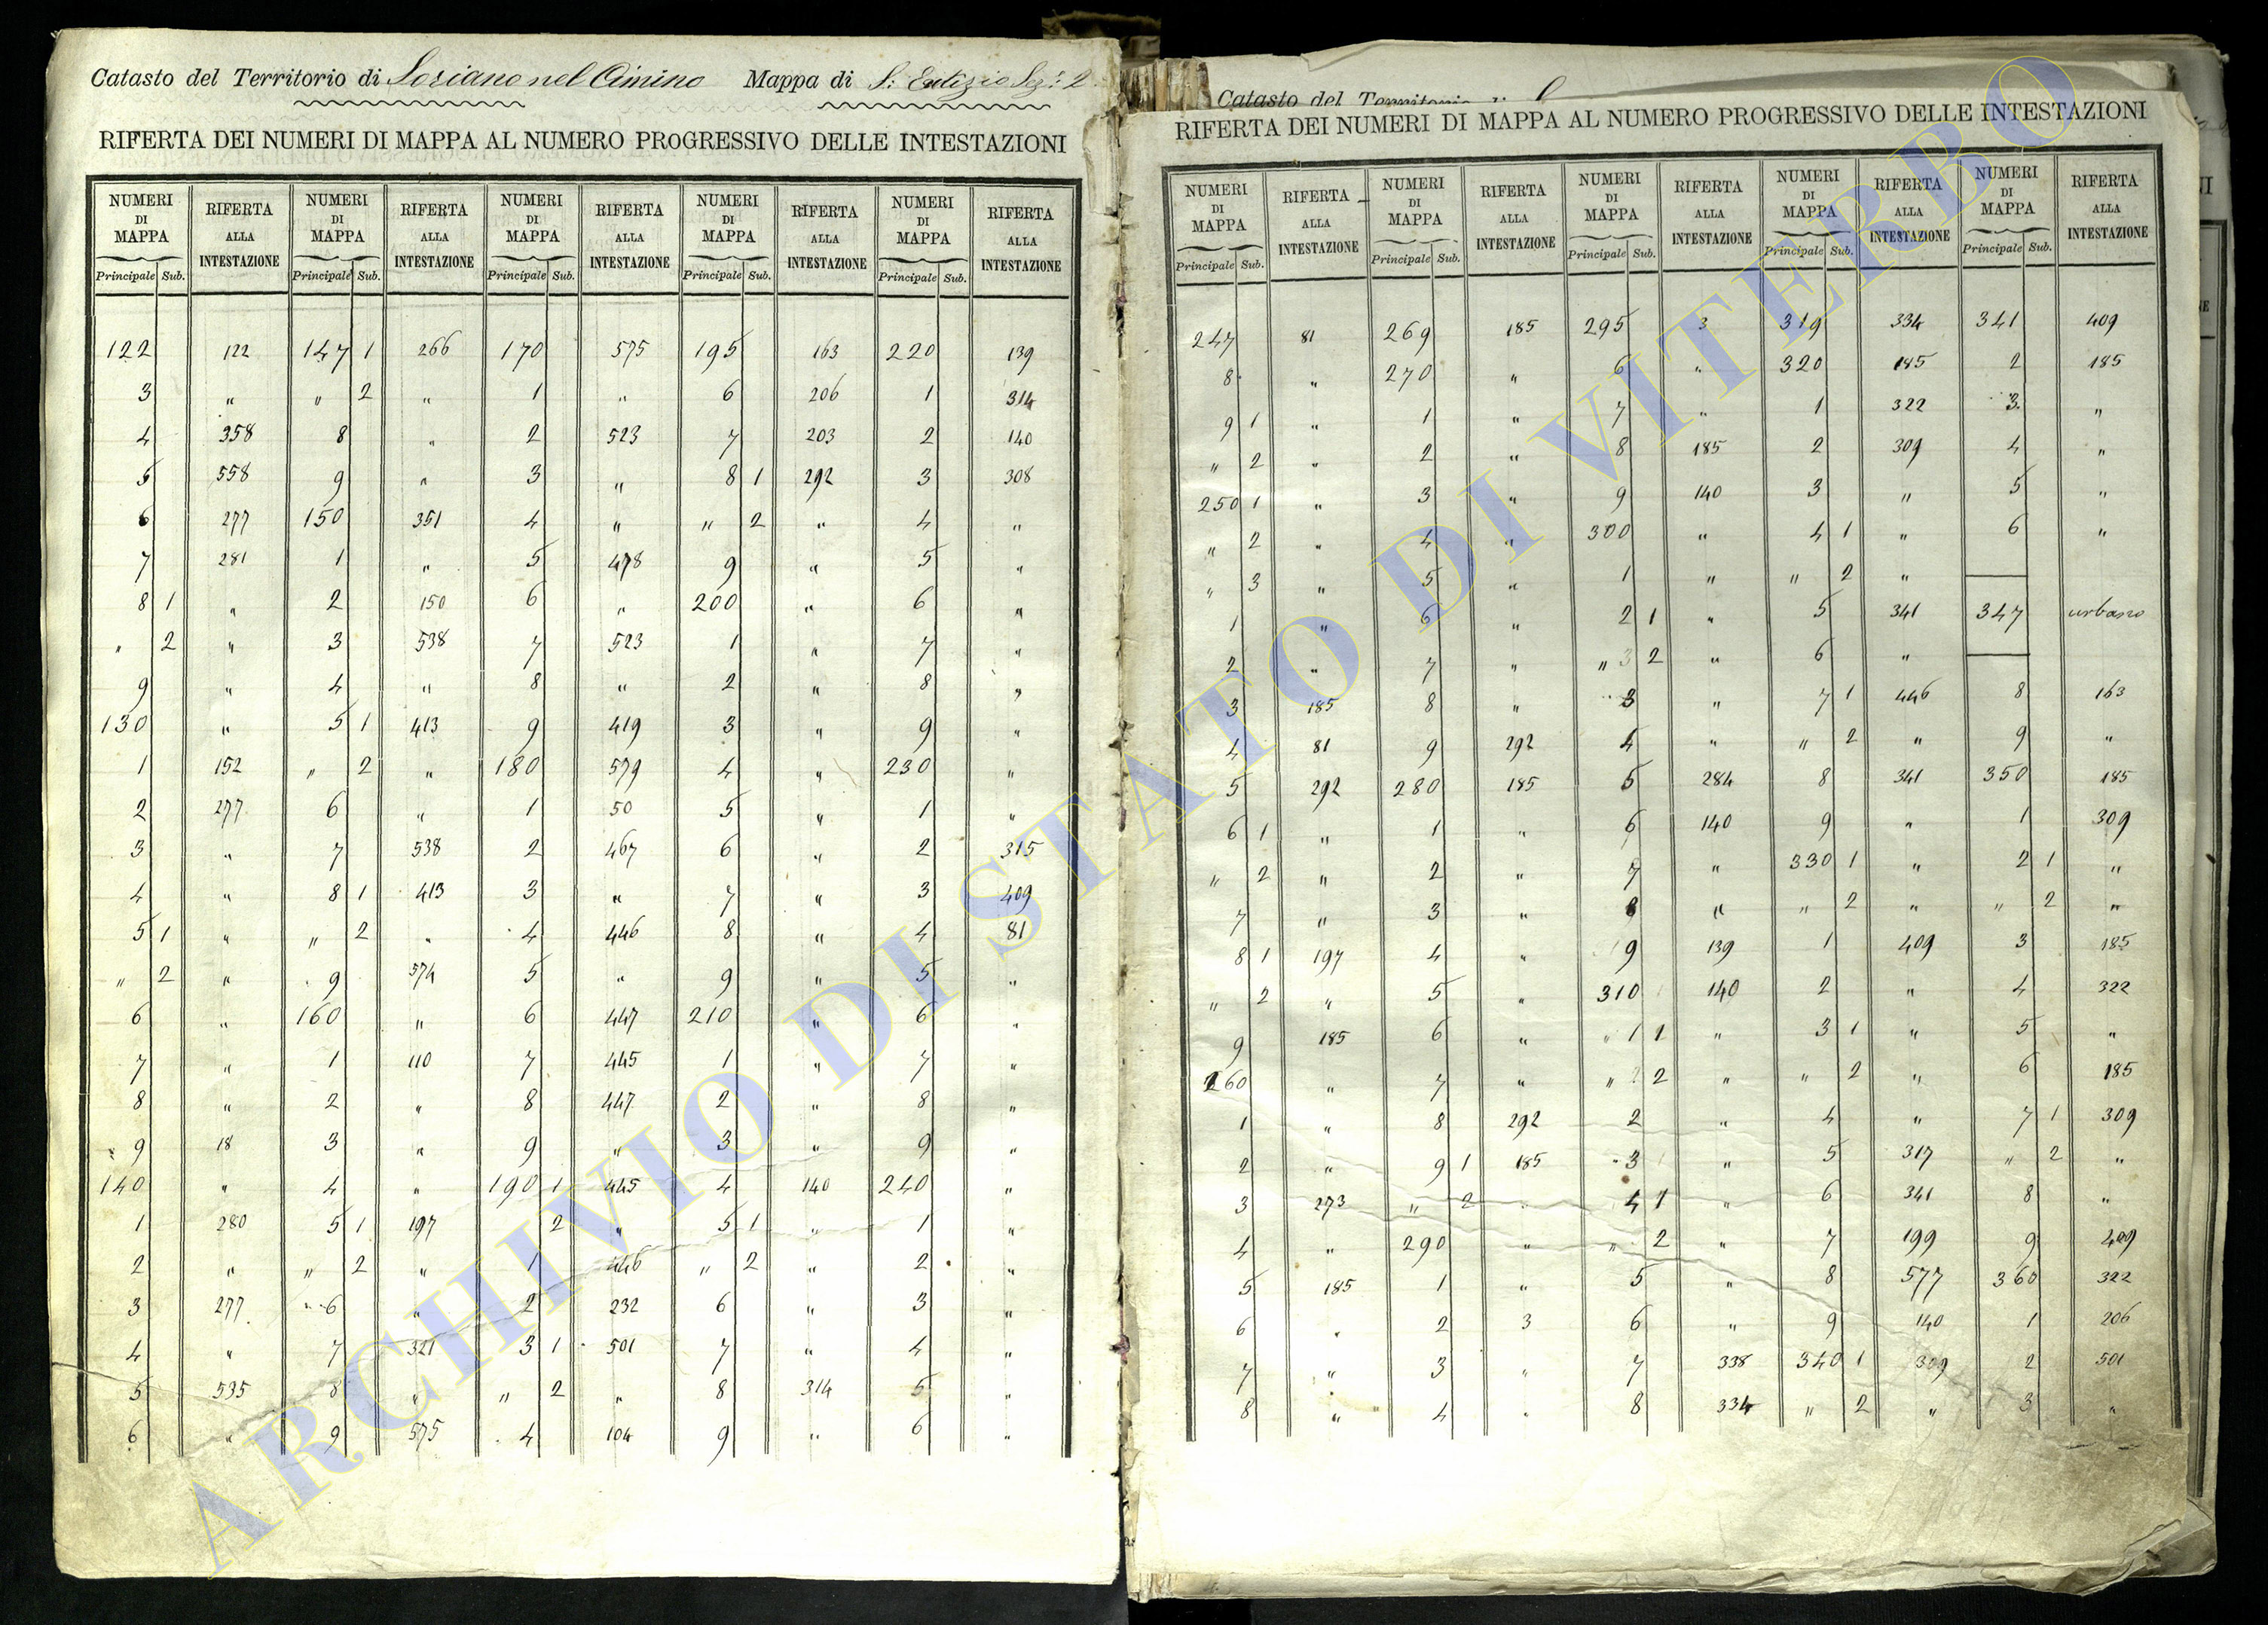 Catasto del Territorio di Soriano nel Cimino Mappa di S. Eutizio Sez.ª 2
RIFERTA DEI NUMERI DI MAPPA AL NUMERO PROGRESSIVO DELLE INTESTAZIONI
NUMERI DI MAPPA RIFERTA ALLA INTESTAZIONE NUMERI DI MAPPA RIFERTA ALLA INTESTAZIONE NUMERI DI MAPPA RIFERTA ALLA INTESTAZIONE NUMERI DI MAPPA RIFERTA ALLA INTESTAZIONE NUMERI DI MAPPA RIFERTA ALLA INTESTAZIONE
Principale Sub. Principale Sub. Principale Sub. Principale Sub. Principale Sub.
122 122 147 1 266 170 575 195 163 220 139
3 " " 2 " 1 " 6 206 1 314
4 358 8 " 2 523 7 203 2 140
5 558 9 " 3 " 8 1 292 3 308
6 277 150 351 4 " " 2 " 4 "
7 281 1 " 5 478 9 " 5 "
8 1 " 2 150 6 " 200 " 6 "
" 2 " 3 538 7 523 1 " 7 "
9 " 4 " 8 " 2 " 8 "
130 " 5 1 413 9 419 3 " 9 "
1 152 " 2 " 180 579 4 " 230 "
2 277 6 " 1 50 5 " 1 "
3 " 7 538 2 467 6 " 2 315
4 " 8 1 413 3 " 7 " 3 409
5 1 " " 2 " 4 446 8 " 4 81
" 2 " 9 574 5 " 9 " 5 "
6 " 160 " 6 447 210 " 6 "
7 " 1 110 7 445 1 " 7 "
8 " 2 " 8 447 2 " 8 "
9 18 3 " 9 " 3 " 9 "
140 " 4 " 190 1 445 4 140 240 "
1 280 5 1 197 2 " 5 1 " 1 "
2 " " 2 " 1 446 " 2 " 2 "
3 277 6 " 2 232 6 " 3 "
4 " 7 321 3 1 501 7 " 4 "
5 535 8 " " 2 " 8 314 5 "
6 " 9 575 4 104 9 " 6 "
Catasto del Territorio di
RIFERTA DEI NUMERI DI MAPPA AL NUMERO PROGRESSIVO DELLE INTESTAZIONI
NUMERI DI MAPPA RIFERTA ALLA INTESTAZIONE NUMERI DI MAPPA RIFERTA ALLA INTESTAZIONE NUMERI DI MAPPA RIFERTA ALLA INTESTAZIONE NUMERI DI MAPPA RIFERTA ALLA INTESTAZIONE NUMERI DI MAPPA RIFERTA ALLA INTESTAZIONE
Principale Sub. Principale Sub. Principale Sub. Principale Sub. Principale Sub.
247 81 269 185 295 3 319 334 341 409
8 " 270 " 6 " 320 185 2 185
9 1 " 1 " 7 " 1 322 3 "
" 2 " 2 " 8 185 2 309 4 "
250 1 " 3 " 9 140 3 " 5 "
" 2 " 4 " 300 " 4 1 " 6 "
" 3 " 5 " 1 " " 2 "
1 " 6 " 2 1 " 5 341 347 urbano
2 " 7 " " 3 2 " 6 "
3 185 8 " 3 " 7 1 446 8 163
4 81 9 292 4 " " 2 " 9 "
5 292 280 185 5 284 8 341 350 185
6 1 " 1 " 6 140 9 " 1 309
" 2 " 2 " 7 " 330 1 " 2 1 "
7 " 3 " 8 " " 2 " " 2 "
8 1 197 4 " 9 139 1 409 3 185
" 2 " 5 " 310 140 2 " 4 322
9 185 6 " " 1 1 " 3 1 " 5 "
260 " 7 " " 2 " " 2 " 6 185
1 " 8 292 2 " 4 " 7 1 309
2 " 9 1 185 3 " 5 317 " 2 "
3 273 " 2 " 4 1 " 6 341 8 "
4 " 290 " " 2 " 7 199 9 409
5 185 1 " 5 " 8 577 360 322
6 " 2 3 6 " 9 140 1 206
7 " 3 " 7 338 340 1 309 2 501
8 " 4 " 8 334 " 2 " 3 "
ARCHIVIO DI STATO DI VITERBO